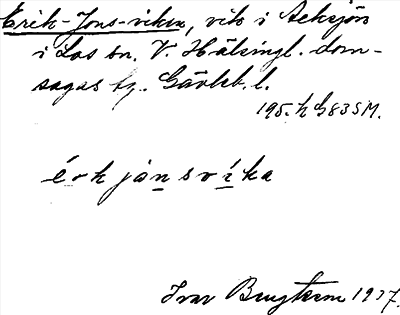 Erik-Jons-viken, vik i Acksjön
i Los sn. V. Hälsingl. dom-
sagas tg. Gävleb. l.
195. h G835M.
érk jȧn sv íka
Ivar Bruzkern 1937.